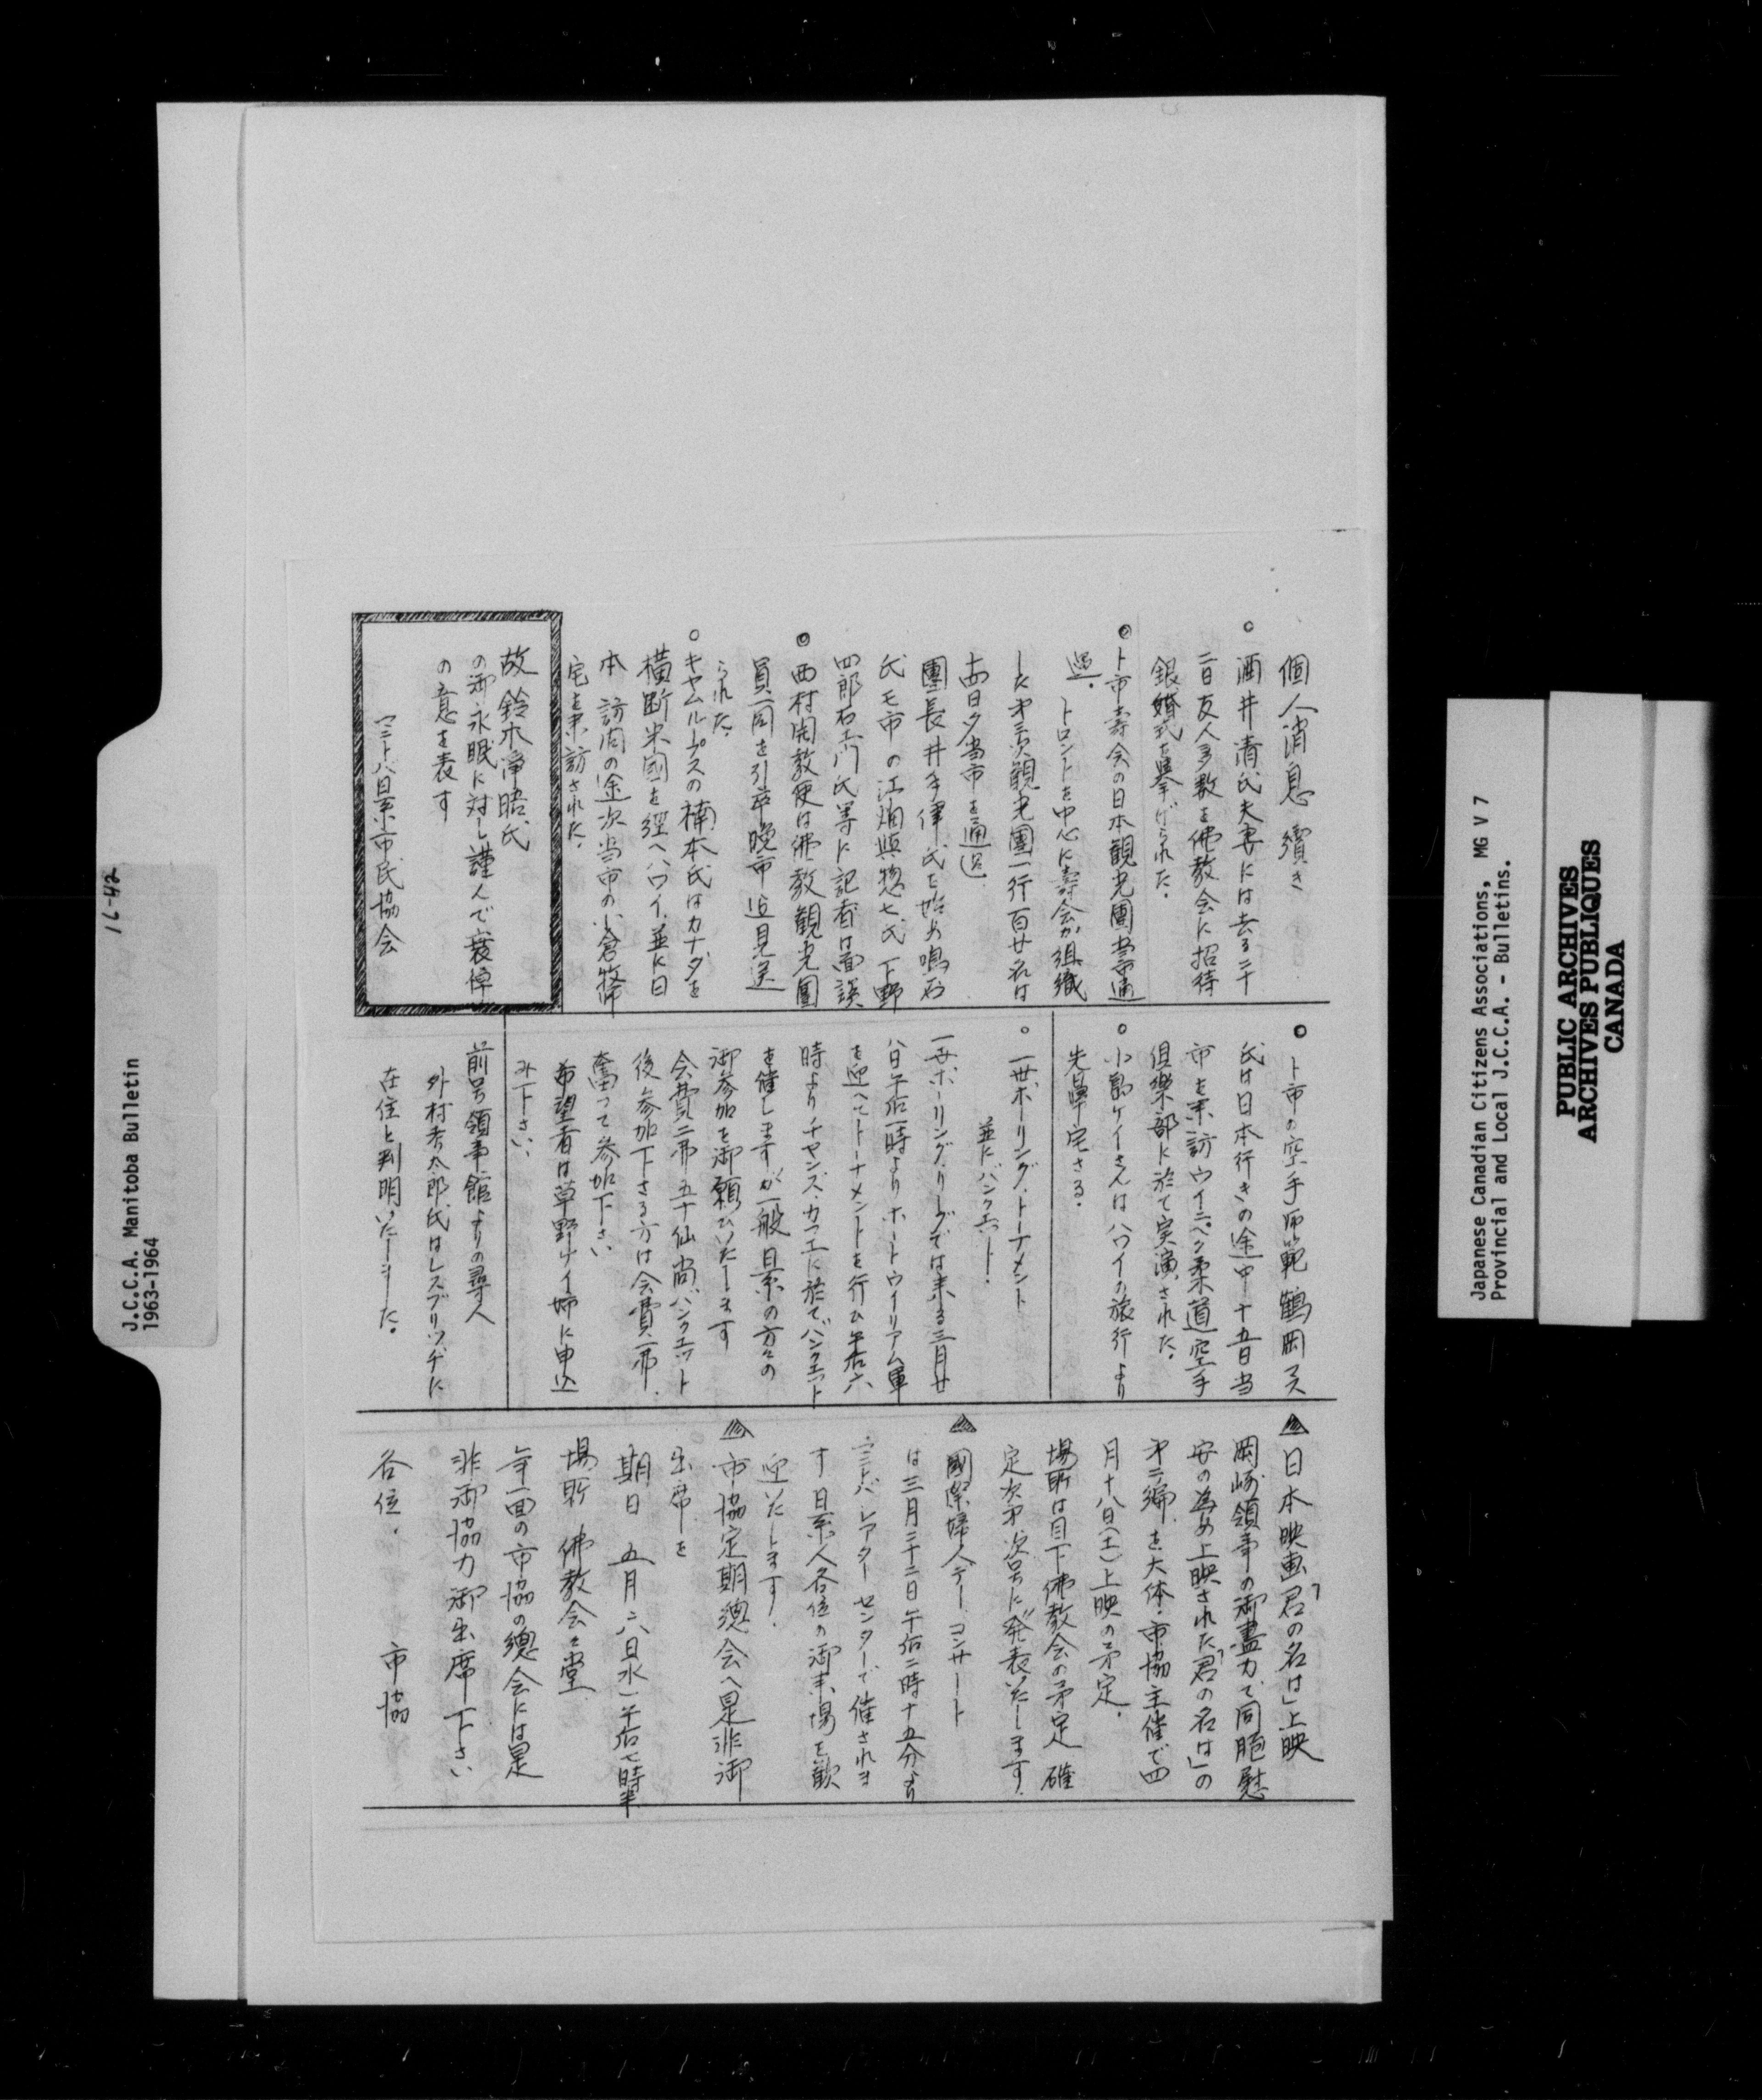 個人消息 續き
○ 酒井清氏夫妻には去る二十
二日友人多数を佛教会に招待
銀婚式を挙げられた.
◎ ト市壽会の日本観光團当市通
過. トロントを中心に壽会が組織
した才三次観光團一行百廿名は
十四日夕当市を通過.
團長井手律氏を始め鳴石
氏モ市の江畑與惣七氏 下野
四郎右エ門氏等に記者は面談
◎ 西村開教使は佛教観光團
員一同を引卒晩市迄見送
られた.
○ キャムループスの楠本氏はカナダを
横断米國を経ヘハワイ.並に日
本 訪問の途次当市の小倉牧師
宅を来訪された.
故 鈴木淨晤氏
の御永眠に対し謹んで哀悼
の意を表す
マニトバ日系市民協会
○ ト市の空手師範 鶴岡マス
氏は日本行きの途中十五日当
市を来訪ウイニペグ柔道空手
倶楽部に於て実演された.
○ 小島ケイさんはハワイの旅行より
先皐宅さる.
○ 一世ボーリング.トーナメント
並にバンクエット.
一世ボーリング.リーグでは来る三月廿
八日午后一時よりホートウイリアム軍
を迎へてトーナメントを行ひ午后六
時よりチャンズ.カフエに於てバンクエット
を催しますが一般日系の方々の
御参加を御願ひいたします
会費二弗五十仙尚バンクエット
後参加下さる方は会費一弗.
奮って参加下さい
希望者は草野リイ姉に申込
み下さい.
前号領事館よりの尋人
外村孝太郎氏はレスブリッヂに
在住と判明いたしました。
日本映画「君の名は」上映
岡崎領事の御盡力で同胞慰
安の為め上映された「君の名は」の
才二編を大体.市協主催で四
月十八日(土)上映の予定.
場所は目下佛教会の予定 確
定次才次号に発表いたします.
國際婦人デー.コンサート
は三月二十二日午后二時十五分より
マニトバ.シアター センターで催されま
す 日系人各位の御来場を歓
迎いたします.
市協定期總会へ是非御
出席を
期日 五月六日(水)午后七時半
場所 佛教会々堂
年一回の市協の總会には是
非御協力御出席下さい
各位. 市協
16-42
J.C.C.A. Manitoba Bulletin
1963-1964
Japanese Canadian Citizens Associations, MG V 7
Provincial and Local J.C.C.A. - Bulletins.
PUBLIC ARCHIVES
ARCHIVES PUBLIQUES
CANADA